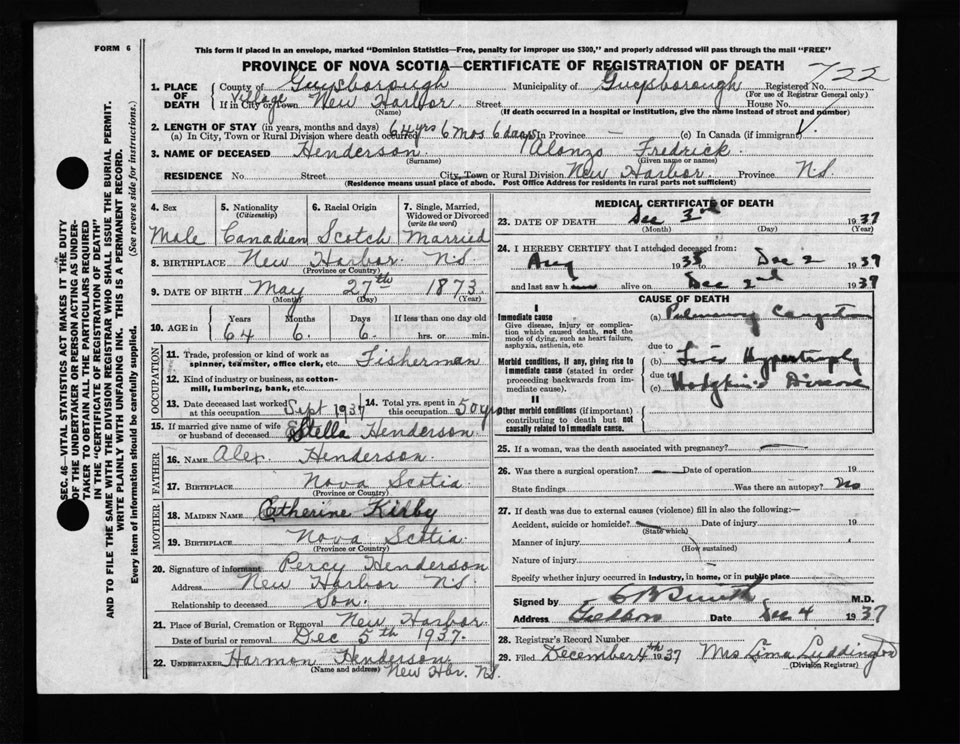 FORM 6
This form if placed in an envelope, marked "Dominion Statistics—Free, penalty for improper use $300," and properly addressed will pass through the mail "FREE"
PROVINCE OF NOVA SCOTIA—CERTIFICATE OF REGISTRATION OF DEATH
722
1. PLACE OF DEATH
County of Guysborough Municipality of Guysborough Registered No.
(For use of Registrar General only)
If in City or Town Village New Harbor Street House No.
(Name) (If death occurred in a hospital or institution, give the name instead of street and number)
2. LENGTH OF STAY (in years, months and days)
(a) In City, Town or Rural Division where death occurred 64 yrs 6 Mos 6 days In Province — (c) In Canada (if immigrant)
3. NAME OF DECEASED Henderson Alonzo Fredrick
(Surname) (Given name or names)
RESIDENCE No. Street City, Town or Rural Division New Harbor Province N.S.
(Residence means usual place of abode. Post Office Address for residents in rural parts not sufficient)
4. Sex Male
5. Nationality (Citizenship) Canadian
6. Racial Origin Scotch
7. Single, Married, Widowed or Divorced (write the word) Married
8. BIRTHPLACE New Harbor N.S.
(Province or Country)
9. DATE OF BIRTH May 27th 1873
(Month) (Day) (Year)
10. AGE in Years Months Days If less than one day old
64 6. 6. hrs. or min.
OCCUPATION
11. Trade, profession or kind of work as spinner, teamster, office clerk, etc. Fisherman
12. Kind of industry or business, as cotton-mill, lumbering, bank, etc.
13. Date deceased last worked at this occupation Sept 1937
14. Total yrs. spent in this occupation 50 yrs
15. If married give name of wife or husband of deceased Stella Henderson
FATHER
16. NAME Alex Henderson
17. BIRTHPLACE Nova Scotia
(Province or Country)
MOTHER
18. MAIDEN NAME Catherine Kirby
19. BIRTHPLACE Nova Scotia
(Province or Country)
20. Signature of informant Percy Henderson
Address New Harbor N.S.
Relationship to deceased Son.
21. Place of Burial, Cremation or Removal New Harbor
Date of burial or removal Dec 5th 1937.
22. UNDERTAKER Harmon Henderson
(Name and address) New Har. N.S.
MEDICAL CERTIFICATE OF DEATH
23. DATE OF DEATH Dec 3rd 1937
(Month) (Day) (Year)
24. I HEREBY CERTIFY that I attended deceased from:
Aug 1935 to Dec 2 1937
and last saw h alive on Dec 2nd 1937
CAUSE OF DEATH
I
Immediate cause
Give disease, injury or complication which caused death, not the mode of dying, such as heart failure, asphyxia, asthenia, etc.
(a) Pulmonary Congestion
due to
Morbid conditions, if any, giving rise to immediate cause (stated in order proceeding backwards from immediate cause).
(b) Liver Hypertrophy
due to
(c) Hodgkin's Disease
II
Other morbid conditions (if important) contributing to death but not causally related to immediate cause.
25. If a woman, was the death associated with pregnancy?
26. Was there a surgical operation? — Date of operation 19
State findings Was there an autopsy? No
27. If death was due to external causes (violence) fill in also the following:—
Accident, suicide or homicide? Date of injury 19
(State which)
Manner of injury
(How sustained)
Nature of injury
Specify whether injury occurred in industry, in home, or in public place
Signed by Smith M.D.
Address Date Dec 4 1937
28. Registrar's Record Number
29. Filed December 4th 1937 Mrs Lima Luddington
(Division Registrar)
SEC. 46—VITAL STATISTICS ACT MAKES IT THE DUTY
OF THE UNDERTAKER OR PERSON ACTING AS UNDER-
TAKER TO OBTAIN ALL THE PARTICULARS REQUIRED
IN THE "CERTIFICATE OF REGISTRATION OF DEATH"
AND TO FILE THE SAME WITH THE DIVISION REGISTRAR WHO SHALL ISSUE THE BURIAL PERMIT.
WRITE PLAINLY WITH UNFADING INK. THIS IS A PERMANENT RECORD.
Every item of information should be carefully supplied. (See reverse side for instructions.)